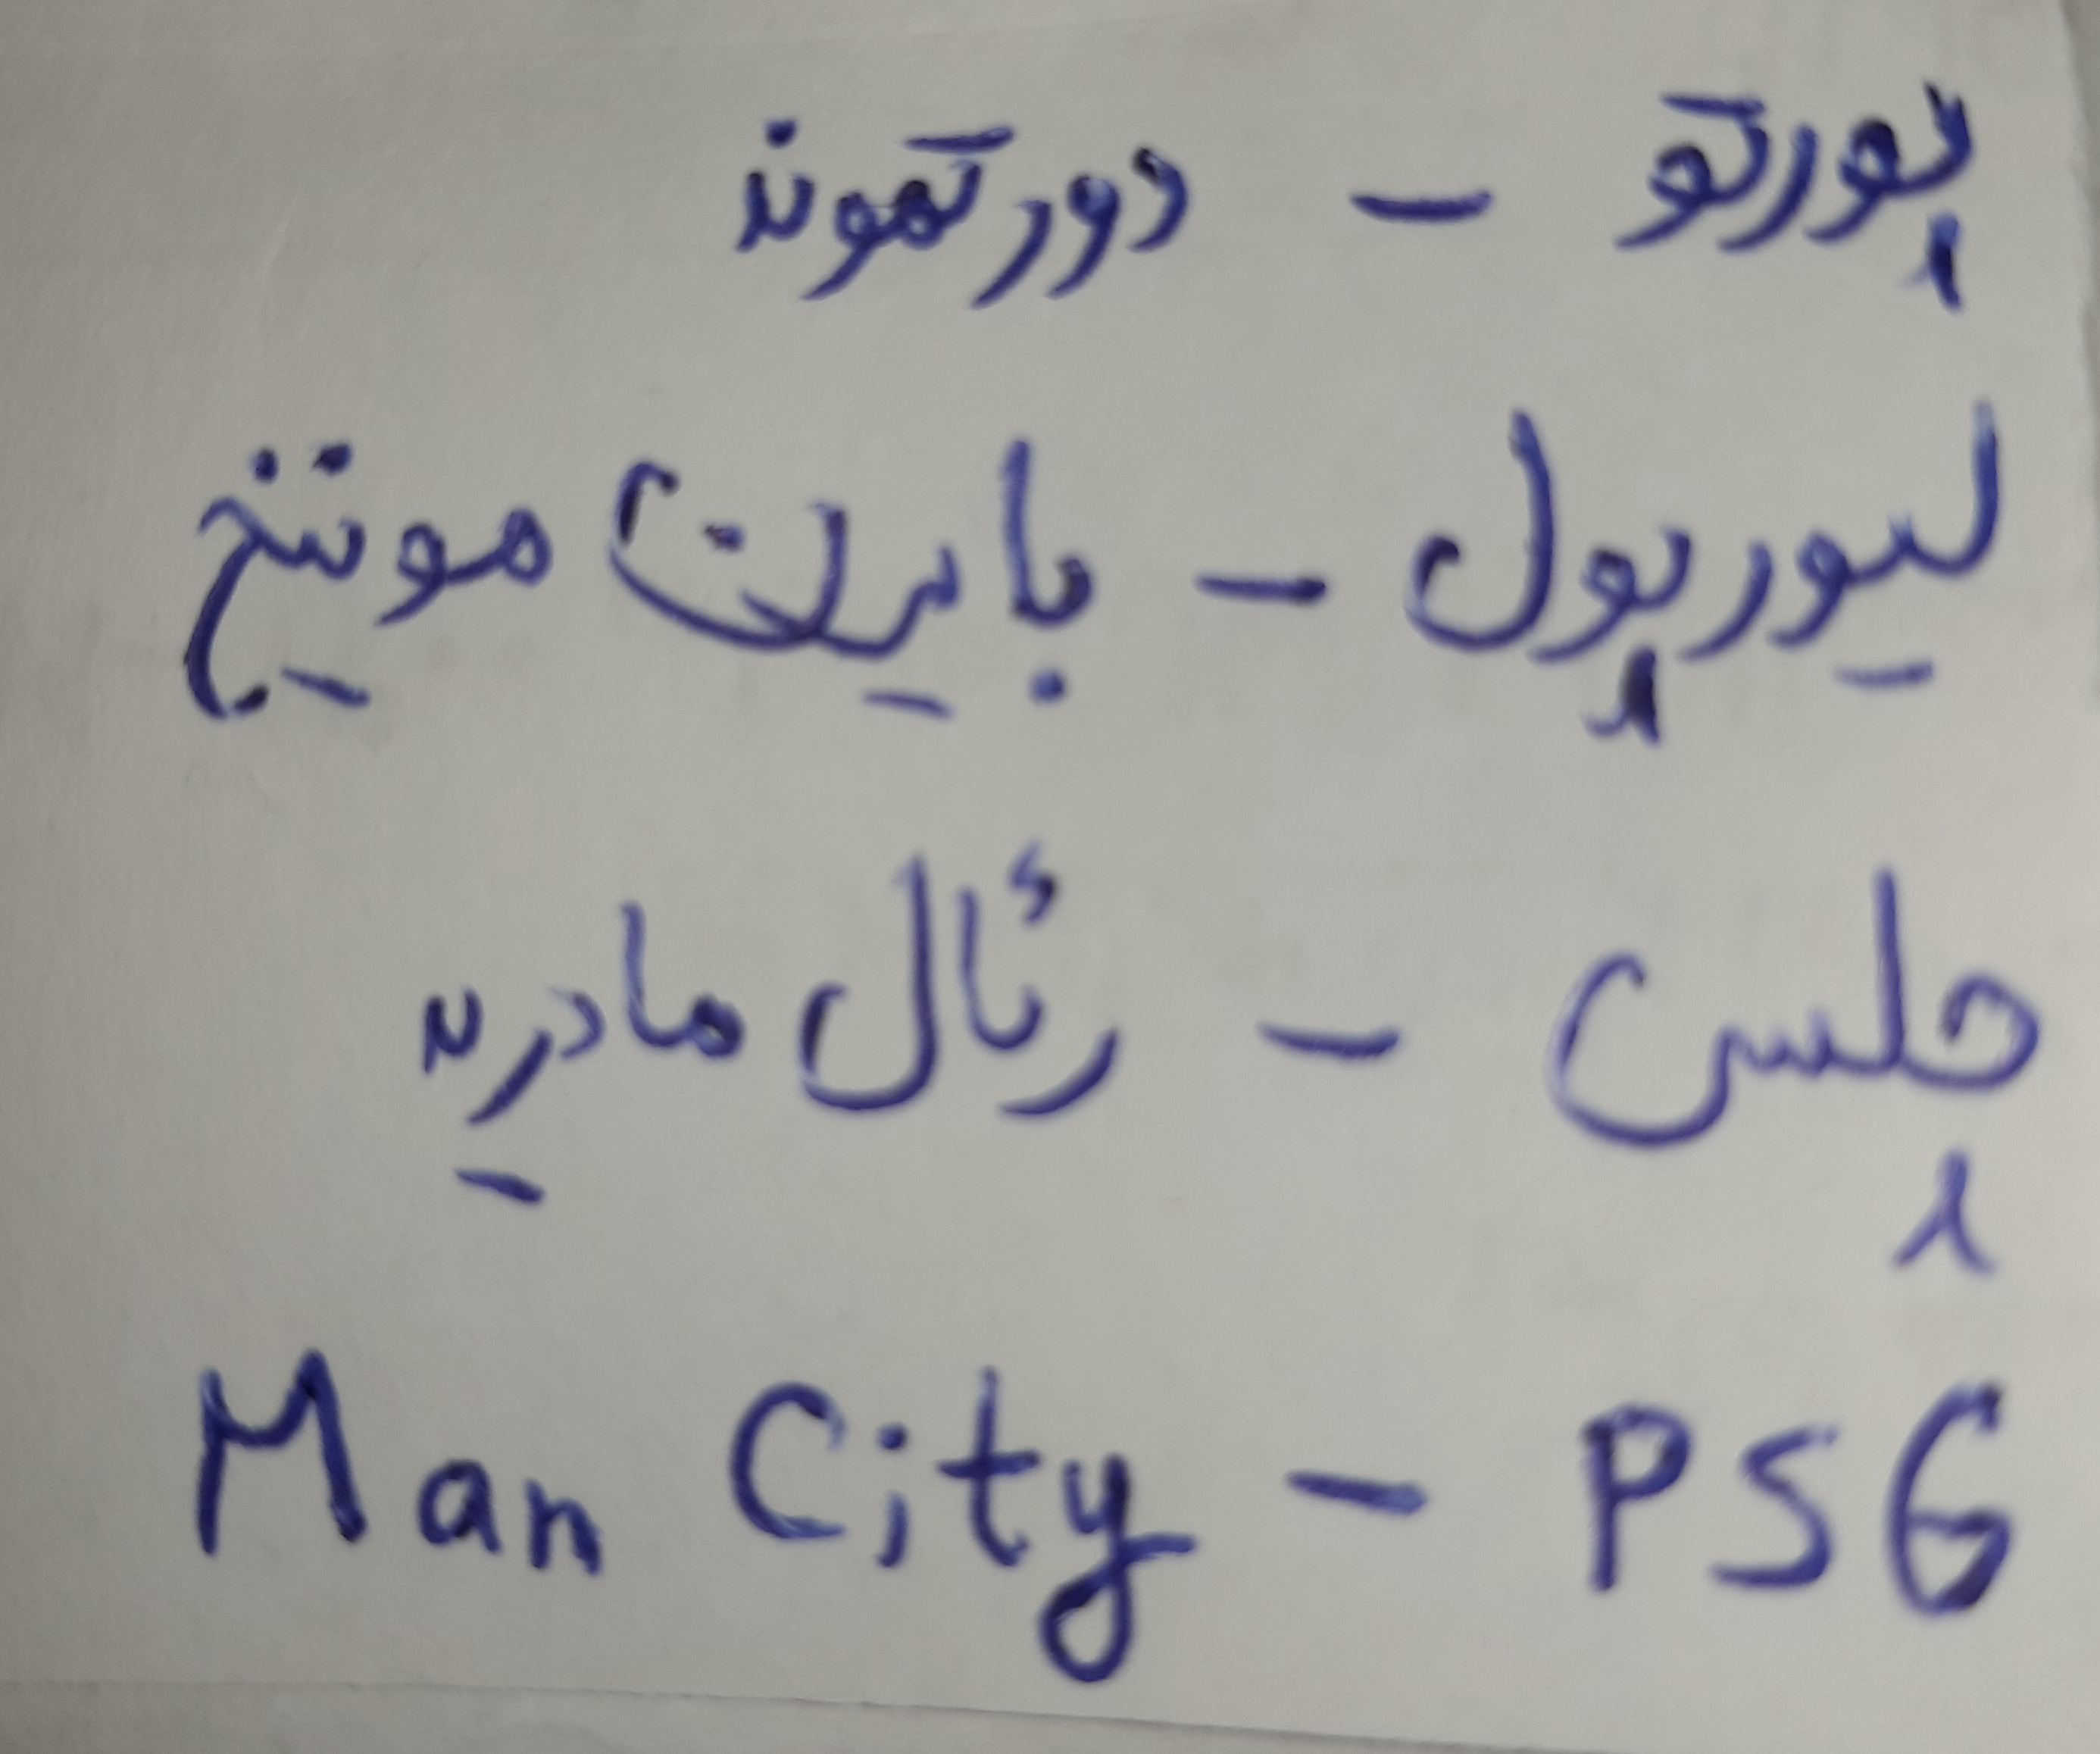 پورتو - دورتموند
لیورپول - بایرن مونیخ
چلسی - رئال مادرید
Man City - PSG